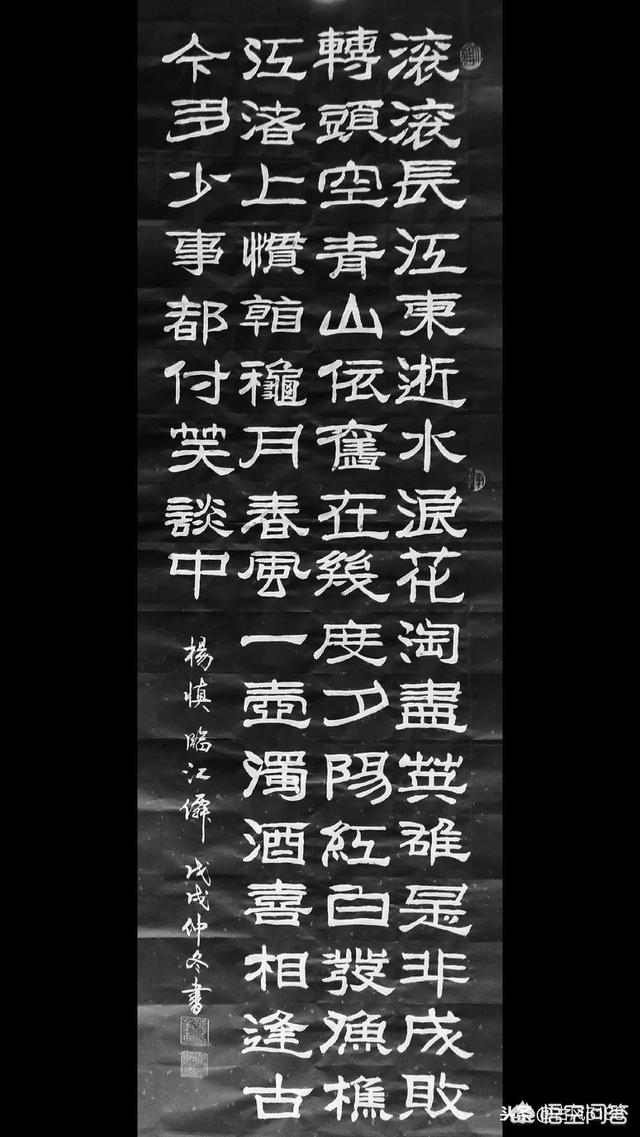 滚滚長江東逝水浪花淘盡英雄是非成敗
轉頭空青山依舊在幾度夕陽紅白發漁樵
江渚上慣看龝月春風一壺濁酒喜相逢古
今多少事都付笑談中
楊慎臨江僊 戊戌仲冬書
悟空问答